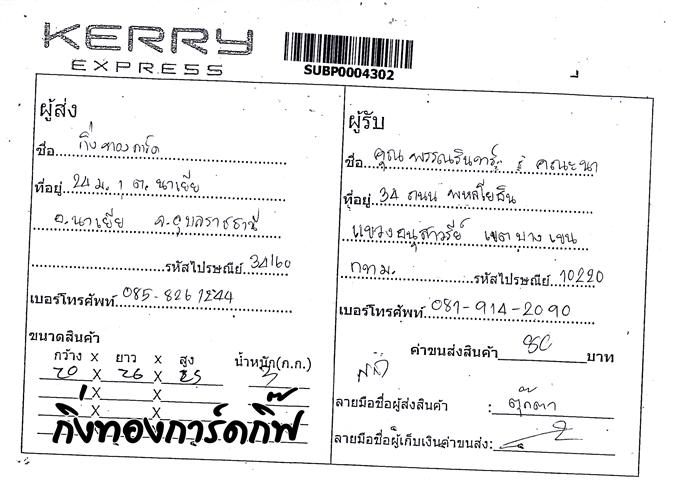 KERRY
EXPRESS
SUBP0004302
ผู้ส่ง
ชื่อ กิ่งทองการ์ด
ที่อยู่ 24 ม. 1 ต. นาเยีย
อ.นาเยีย จ.อุบลราชธานี
รหัสไปรษณีย์ 34160
เบอร์โทรศัพท์ 085-826 1244
ขนาดสินค้า
กว้าง x ยาว x สูง น้ำหนัก(ก.ก.)
20 x 26 x 25 3
x x
x x
กิ่งทองการ์ดกิ๊ฟ
ผู้รับ
ชื่อ คุณ พรรณรินทร์ คณะนา
ที่อยู่ 34 ถนน พหลโยธิน
แขวงอนุสาวรีย์ เขตบางเขน
กทม. รหัสไปรษณีย์ 10220
เบอร์โทรศัพท์ 081-914-2090
ค่าขนส่งสินค้า บาท
ลายมือชื่อผู้ส่งสินค้า : ตุ๊กตา
ลายมือชื่อผู้เก็บเงินค่าขนส่ง: